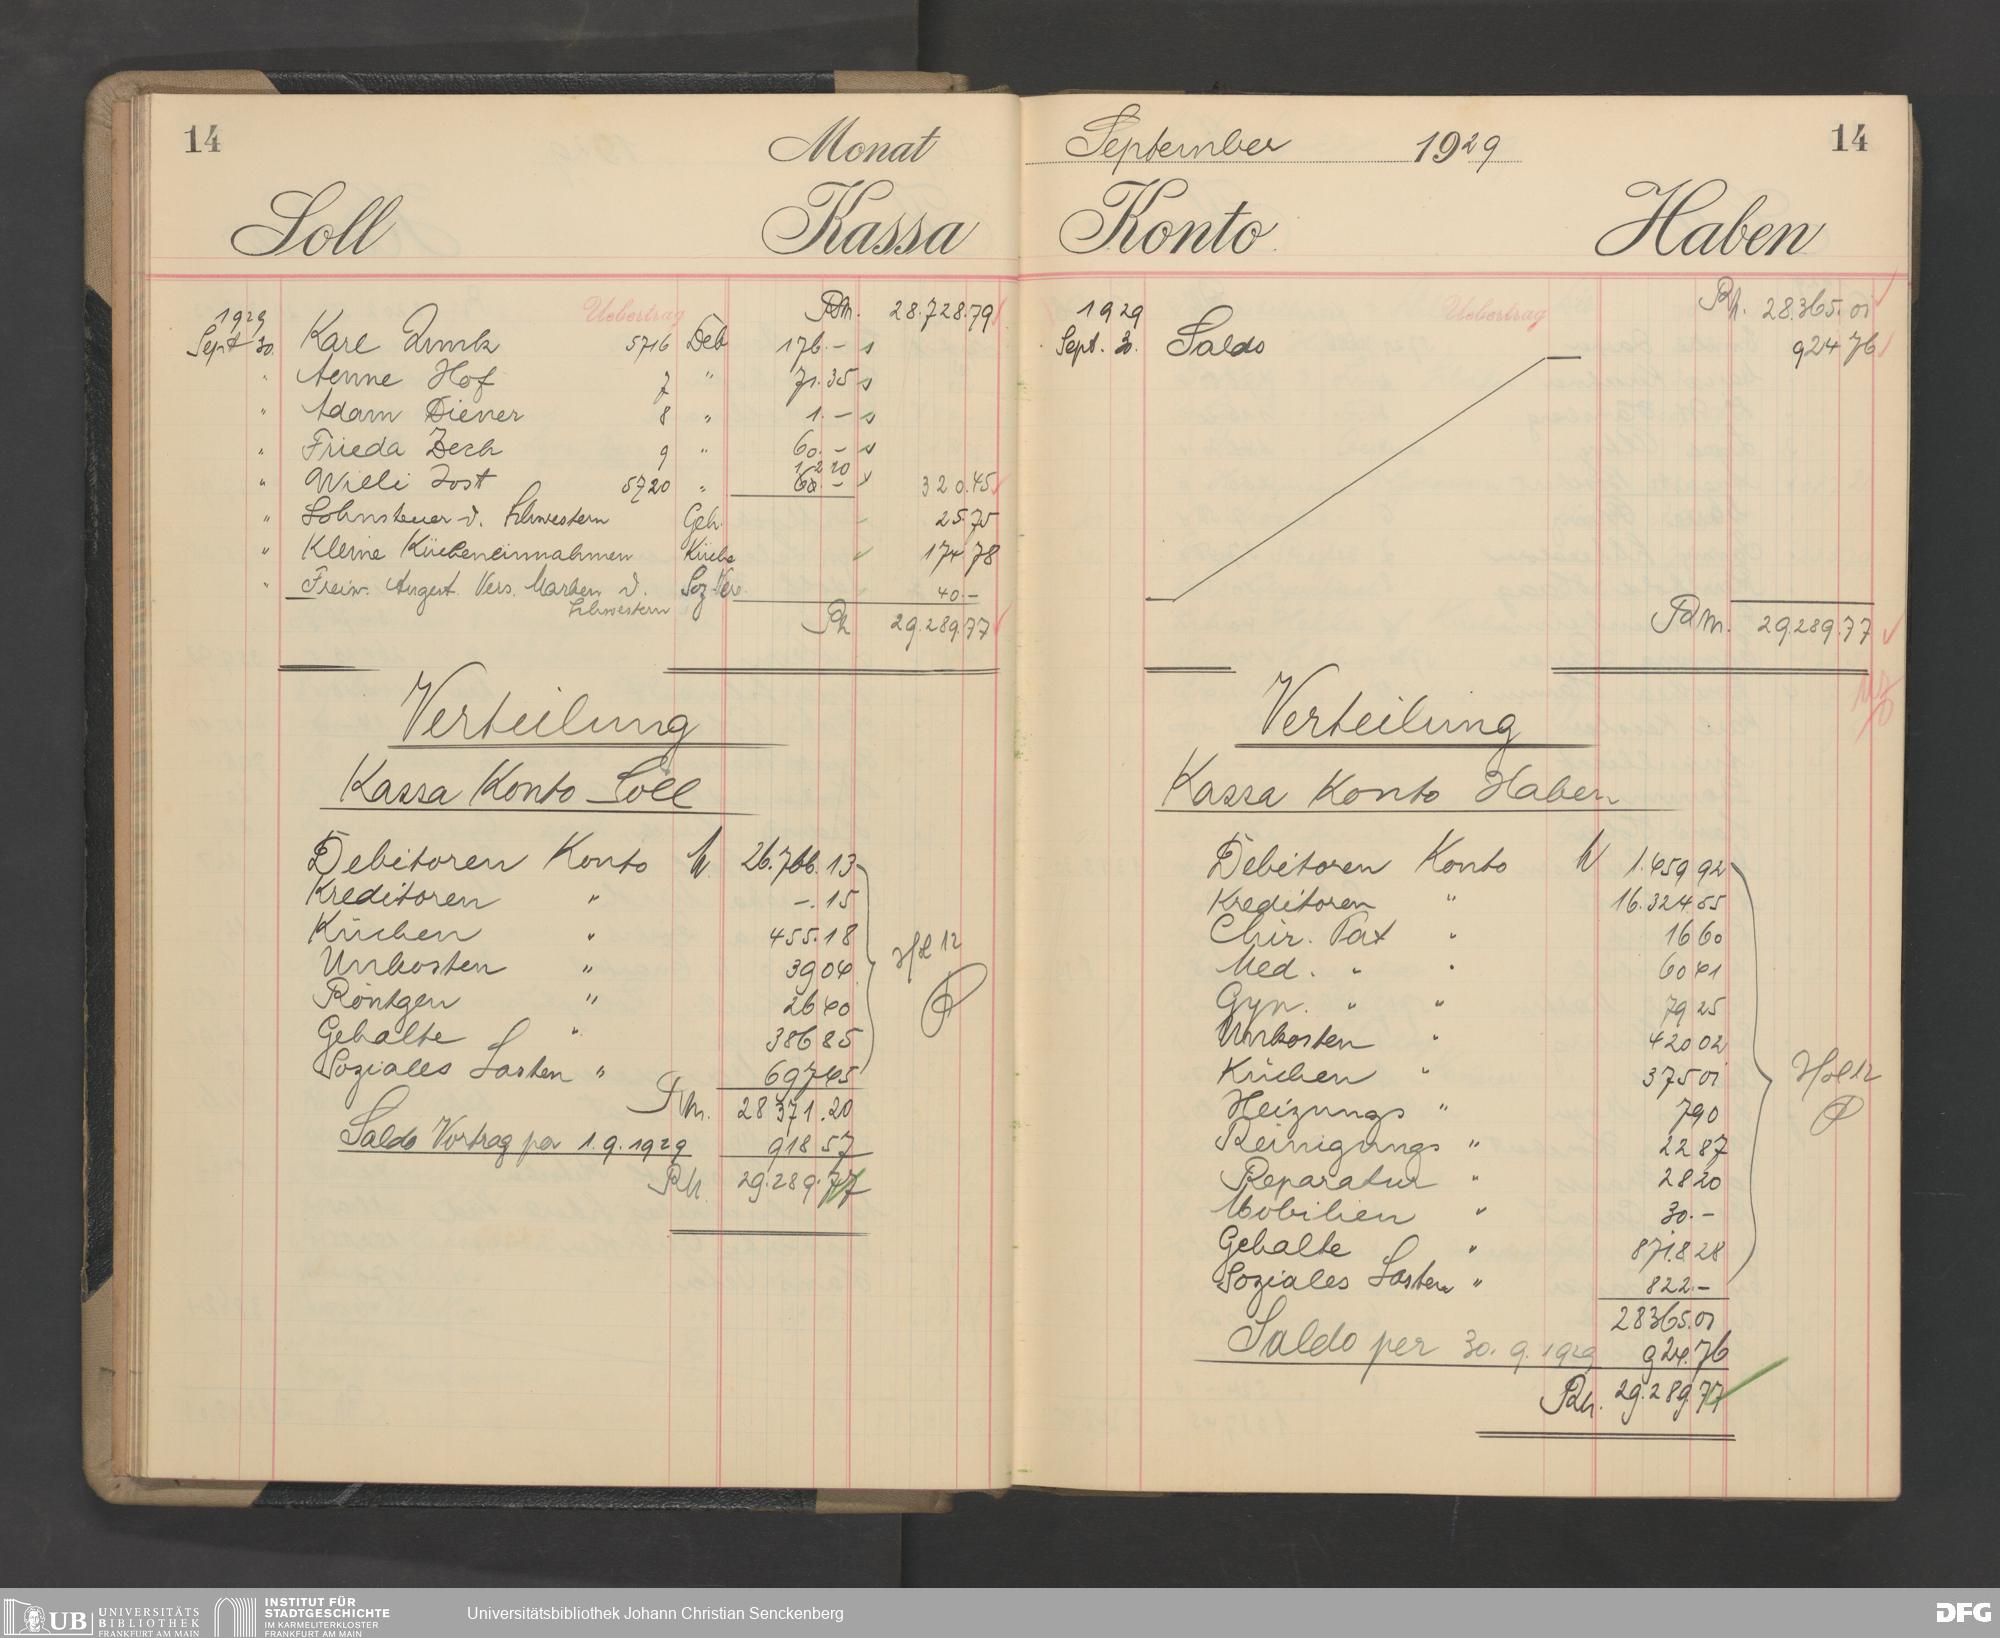 14
Monat
Soll Kassa
1929 Uebertrag Rm. 28.728.79
Sept 30. Karl 5716 Deb 176.–
" Aenne Hof 7 " 71.35
" Adam Diener 8 " 1.–
" Frieda Zech 9 " 60.–
" Willi Jost 5720 " 12 10 320.45
" Lohnsteuer d. Schwestern Geh. 25 75
" Kleine Kücheneinnahmen Küche 174 78
" Freiw. Angest. Vers. Marken d. Soz. Vers. 40.–
Schwestern
Rm 29.289.77
Verteilung
Kassa Konto Soll
Debitoren Konto M. 26.766.13
Kreditoren " –.15
Küchen " 455.18
Unkosten " 39 04
Röntgen " 26 40
Gehalte " 386 85
Soziales Lasten " 697 45
Rm. 28 371.20
Saldo Vortrag per 1.9.1929 918 57
Rm. 29.289.77
14
September 1929
Konto Haben
1929 Uebertrag Rm. 28.365.01
Sept. 30. Saldo 924 76
Rm. 29.289.77
Verteilung
Kassa Konto Haben
Debitoren Konto M 1.459 92
Kreditoren " 16.324 55
Chir. Pat " 16 60
Med. " " 60 41
Gyn. " " 79 25
Unkosten " 420 02
Küchen " 375 01
Heizungs " 7 90
Reinigungs " 22 87
Reparatur " 28 20
Mobilien " 30.–
Gehalte " 8718 28
Soziales Lasten " 822.–
28365.01
Saldo per 30.9.1929 924.76
Rm. 29.289.77
UB UNIVERSITÄTS
BIBLIOTHEK
FRANKFURT AM MAIN
INSTITUT FÜR
STADTGESCHICHTE
IM KARMELITERKLOSTER
FRANKFURT AM MAIN
Universitätsbibliothek Johann Christian Senckenberg
DFG